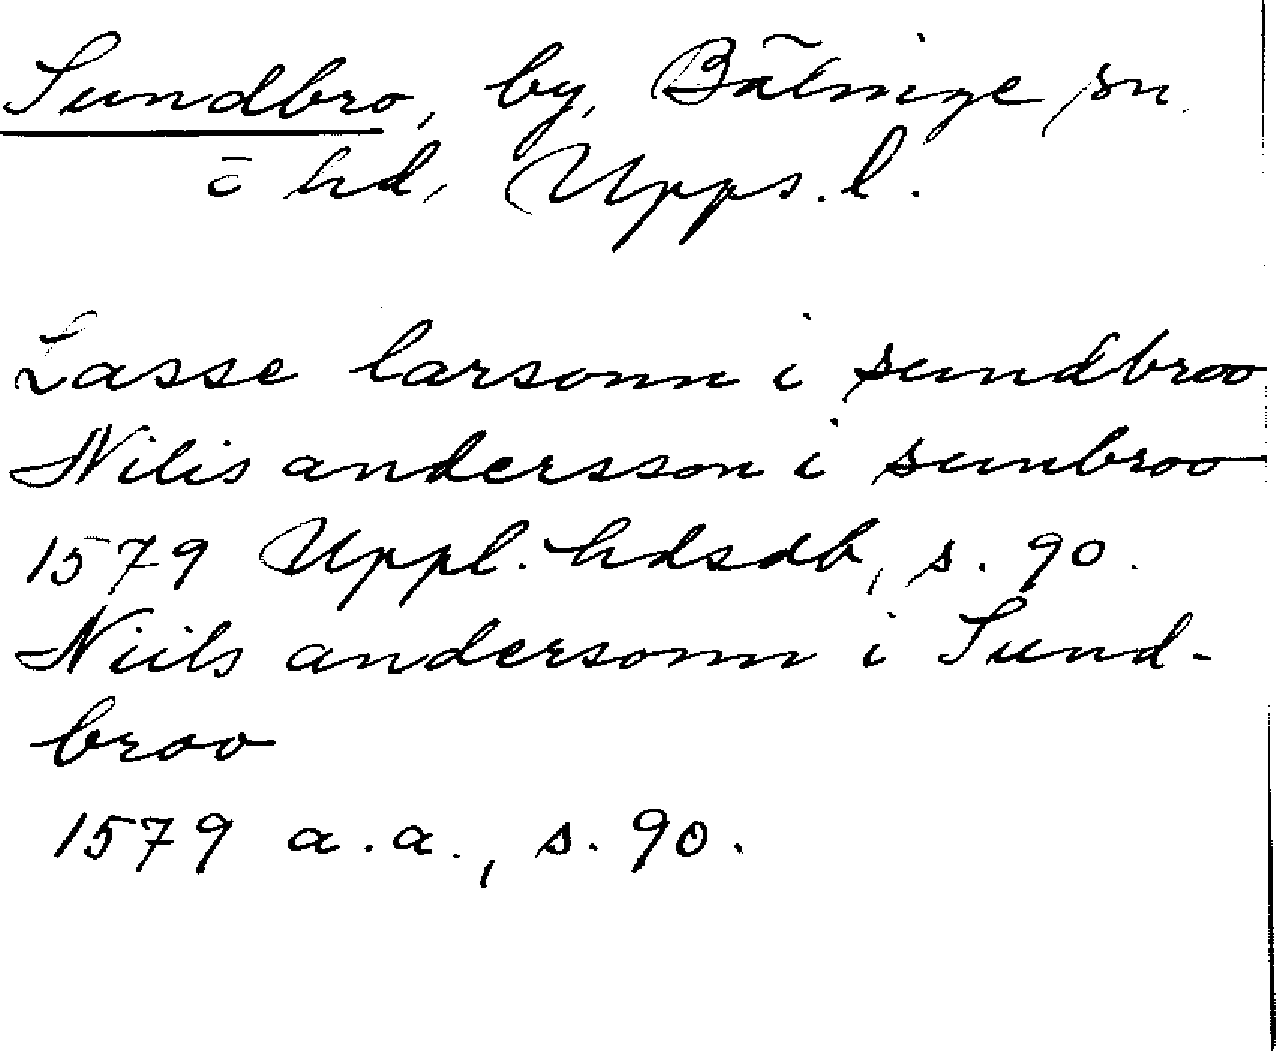 Sundbro, by, Bälinge sn
o hd, Upps. l.
Lasse larsonn i sundbroo
Nilis andersson i sunbroo
1579 Uppl. hdsdb, s. 90.
Niils andersonn i Sund-
broo
1579 a. a., s. 90.